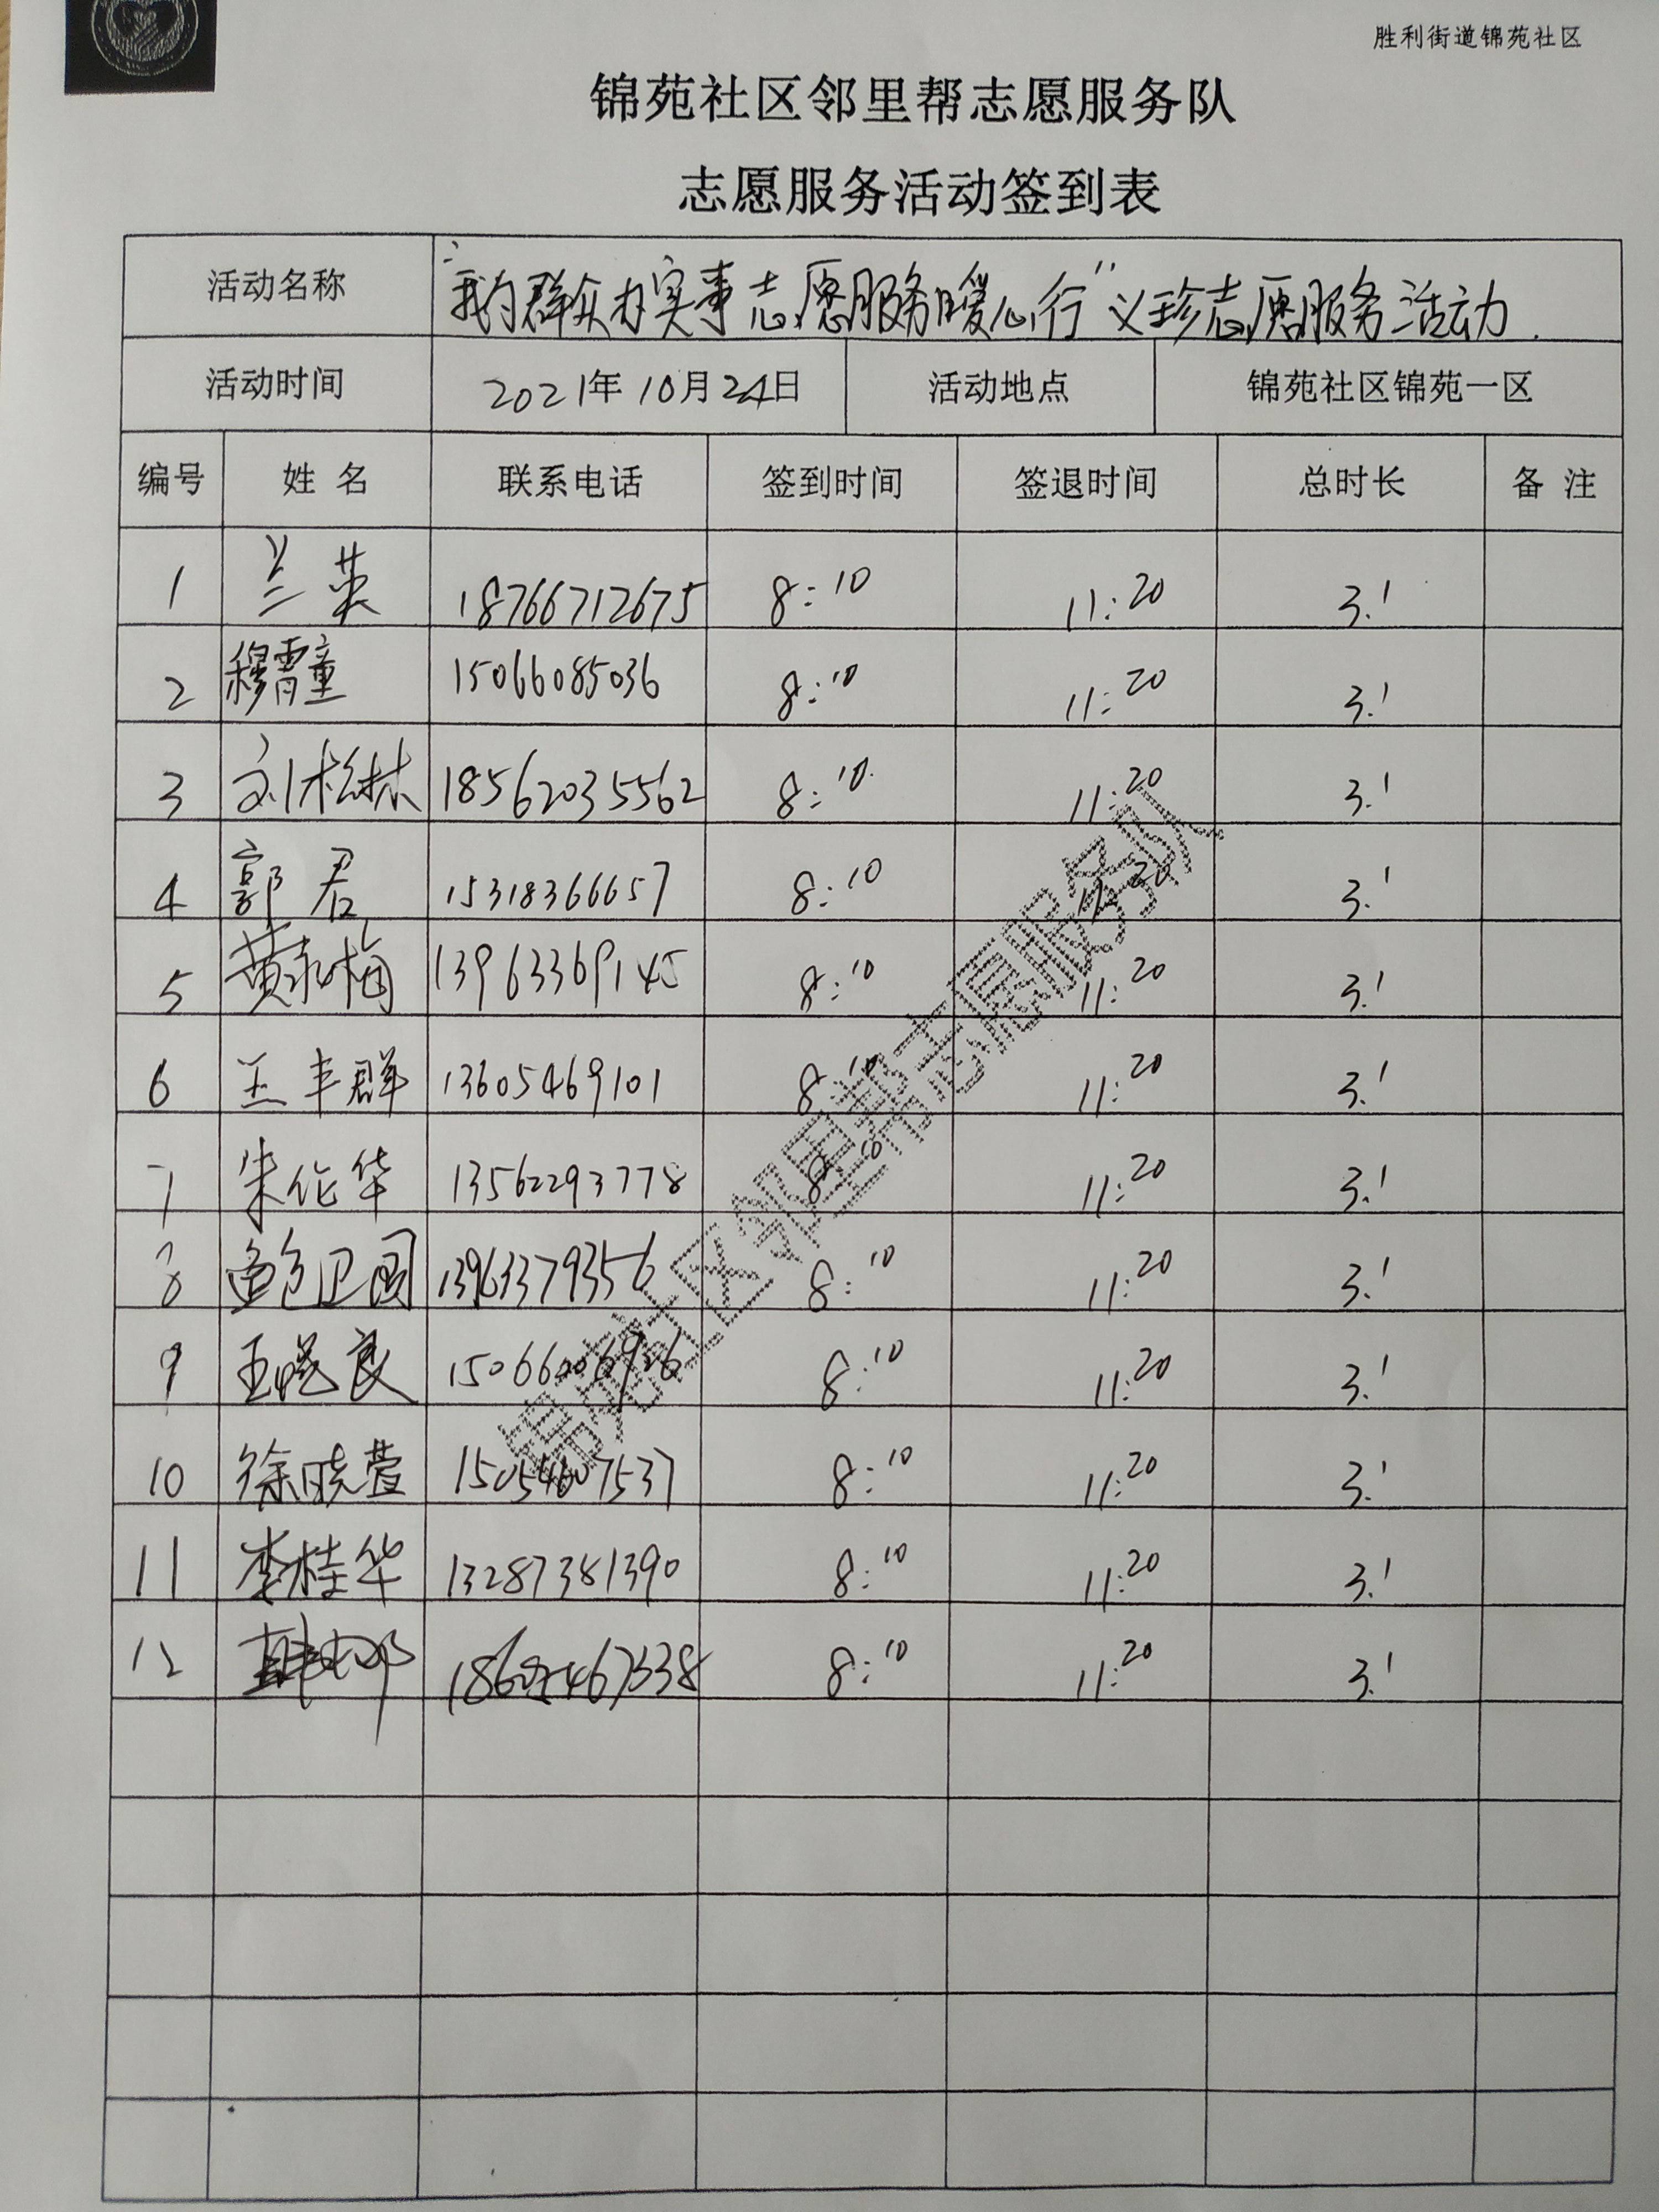 胜利街道锦苑社区
锦苑社区邻里帮志愿服务队
志愿服务活动签到表
活动名称 "我为群众办实事志愿服务暖心行"义珍志愿服务活动.
活动时间 2021年10月24日 活动地点 锦苑社区锦苑一区
编号 姓名 联系电话 签到时间 签退时间 总时长 备注
1 兰英 18766712675 8:10 11:20 3.1
2 穆霄童 15066085036 8:10 11:20 3.1
3 刘松林 18562035562 8:10 11:20 3.1
4 郭君 15318366657 8:10 11:20 3.1
5 黄永梅 13963369145 8:10 11:20 3.1
6 王丰群 13605469101 8:10 11:20 3.1
7 朱伦华 13562293778 8:10 11:20 3.1
8 鲍卫国 13963379356 8:10 11:20 3.1
9 王 良 8:10 11:20 3.1
10 徐晓萱 15054607537 8:10 11:20 3.1
11 李桂华 13287381390 8:10 11:20 3.1
12 韩 8:10 11:20 3.1
锦苑社区邻里帮志愿服务队